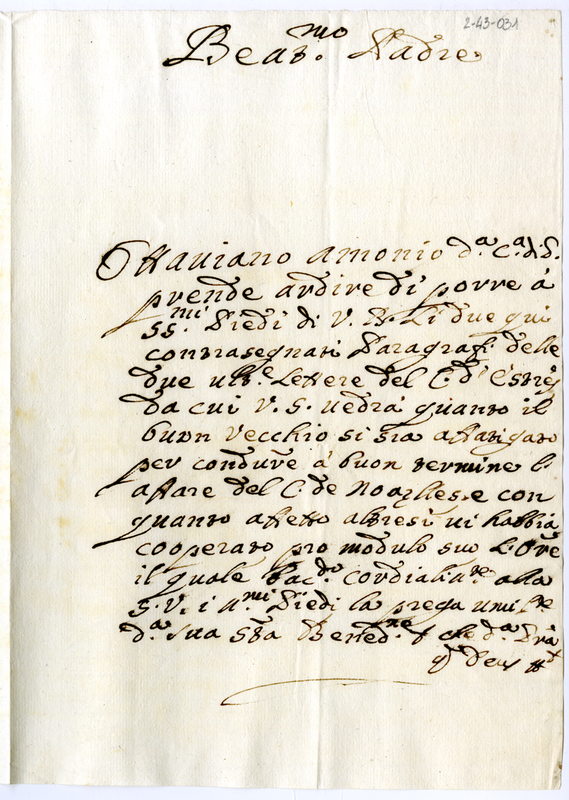 2-43-031
Beat.mo Padre
Ottaviano Antonio d.a C.a di S.
prende ardire di porre à
SS.mi Piedi di V. B. li due qui
contrasegnati Paragrafi delle
due ult.e Lettere del C. d'Estrèy
da cui V. S. uedrà quanto il
buon vecchio si sia affatigato
per condurre à buon termine l'
affare del C. de Noaglies. e con
quanto affetto altresì ui habbia
cooperato pro modulo suo l'Ore
il quale bac.do cordialm.te alla
S. V. i S.mi Piedi la prega umil.te
d.a sua S.ta Bened.ne che d.a
q. Deus